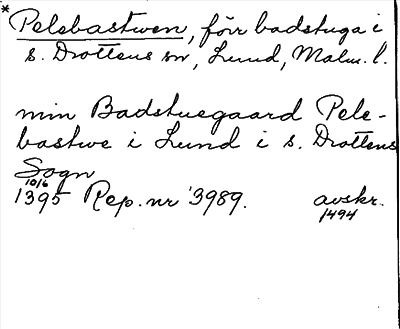 * Pelebastwen, förr badstuga i
s. Drottens sn, Lund, Malm. l.
min Badstuegaard Pele-
bastwe i Lund i s. Drottens
Sogn
10/6
1395 Rep. nr 3989. avskr.
1494